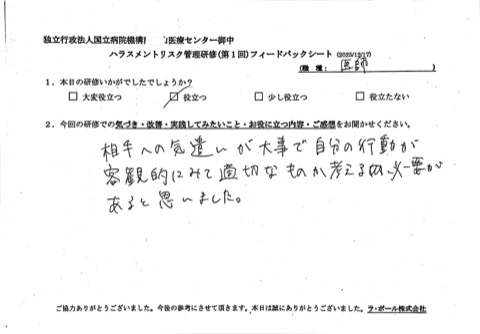 独立行政法人国立病院機構 医療センター御中
ハラスメントリスク管理研修(第1回)フィードバックシート (2025/12/17)
(職 種: 医師 )
1．本日の研修いかがでしたでしょうか?
□ 大変役立つ ☑ 役立つ □ 少し役立つ □ 役立たない
2．今回の研修での気づき・改善・実践してみたいこと・お役に立つ内容・ご感想をお聞かせください。
相手への気遣いが大事で自分の行動が
客観的にみて適切なものか考える必要が
あると思いました。
ご協力ありがとうございました。今後の参考にさせて頂きます。本日は誠にありがとうございました。ラ・ポール株式会社